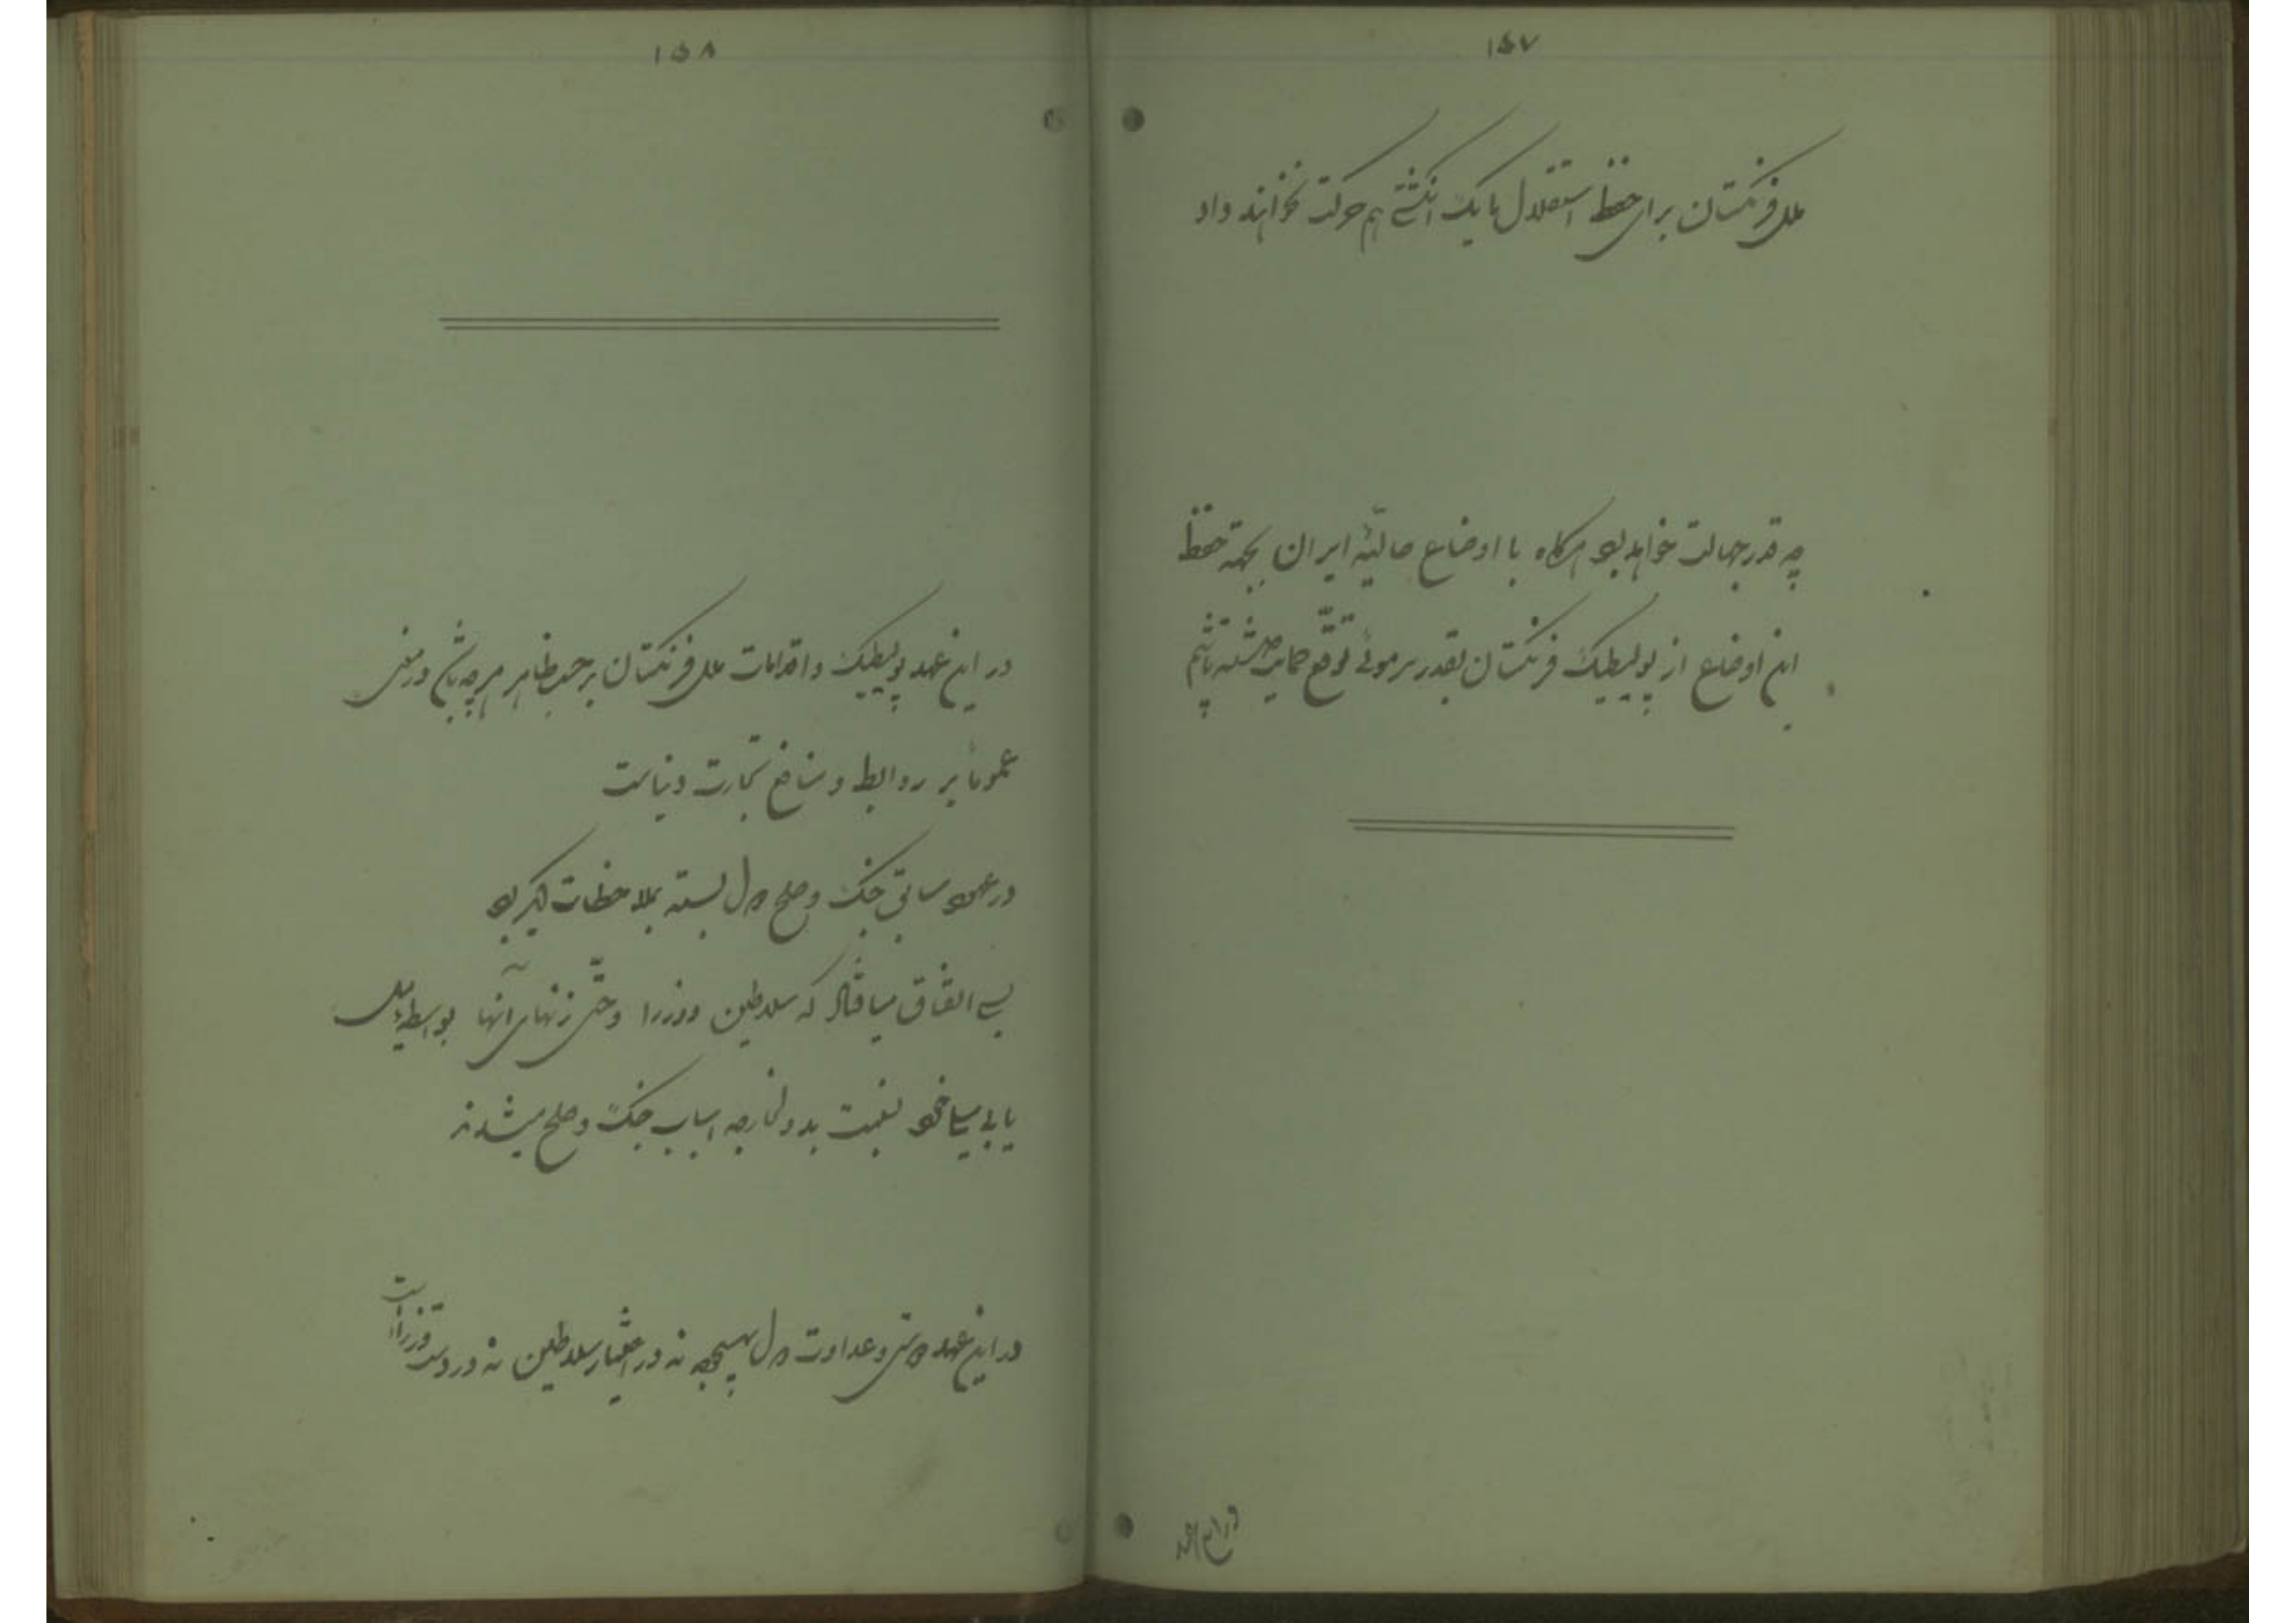 ۱۵۷
ملل فرنگستان برای حفظ استقلال ما یک انگشتی هم حرکت نخواهند داد
چه قدر جهالت خواهد بود هرگاه با اوضاع حالیّهٔ ایران بجهة حفظ
این اوضاع از پولیطیک فرنگستان بقدر سر موئی توقّع حمایت داشته باشیم
۱۵۸
در این عهد پولیطیک و اقدامات ملل فرنگستان بر حسب ظاهر هر چه باشد در معنی
عموماً بر روابط و منافع تجارت دنیاست
در عهود سابق جنگ و صلح دول بسته بملاحظات دیگر بود
بسی اتفاق میافتاد که سلاطین و وزرا و حتّی زنهای آنها بواسطهٔ میل
یا بی میلی خود نسبت بدول خارجه اسباب جنگ و صلح میشدند
در این عهد دوستی و عداوت دول بهیچوجه نه در اختیار سلاطین نه در دست وزرا است